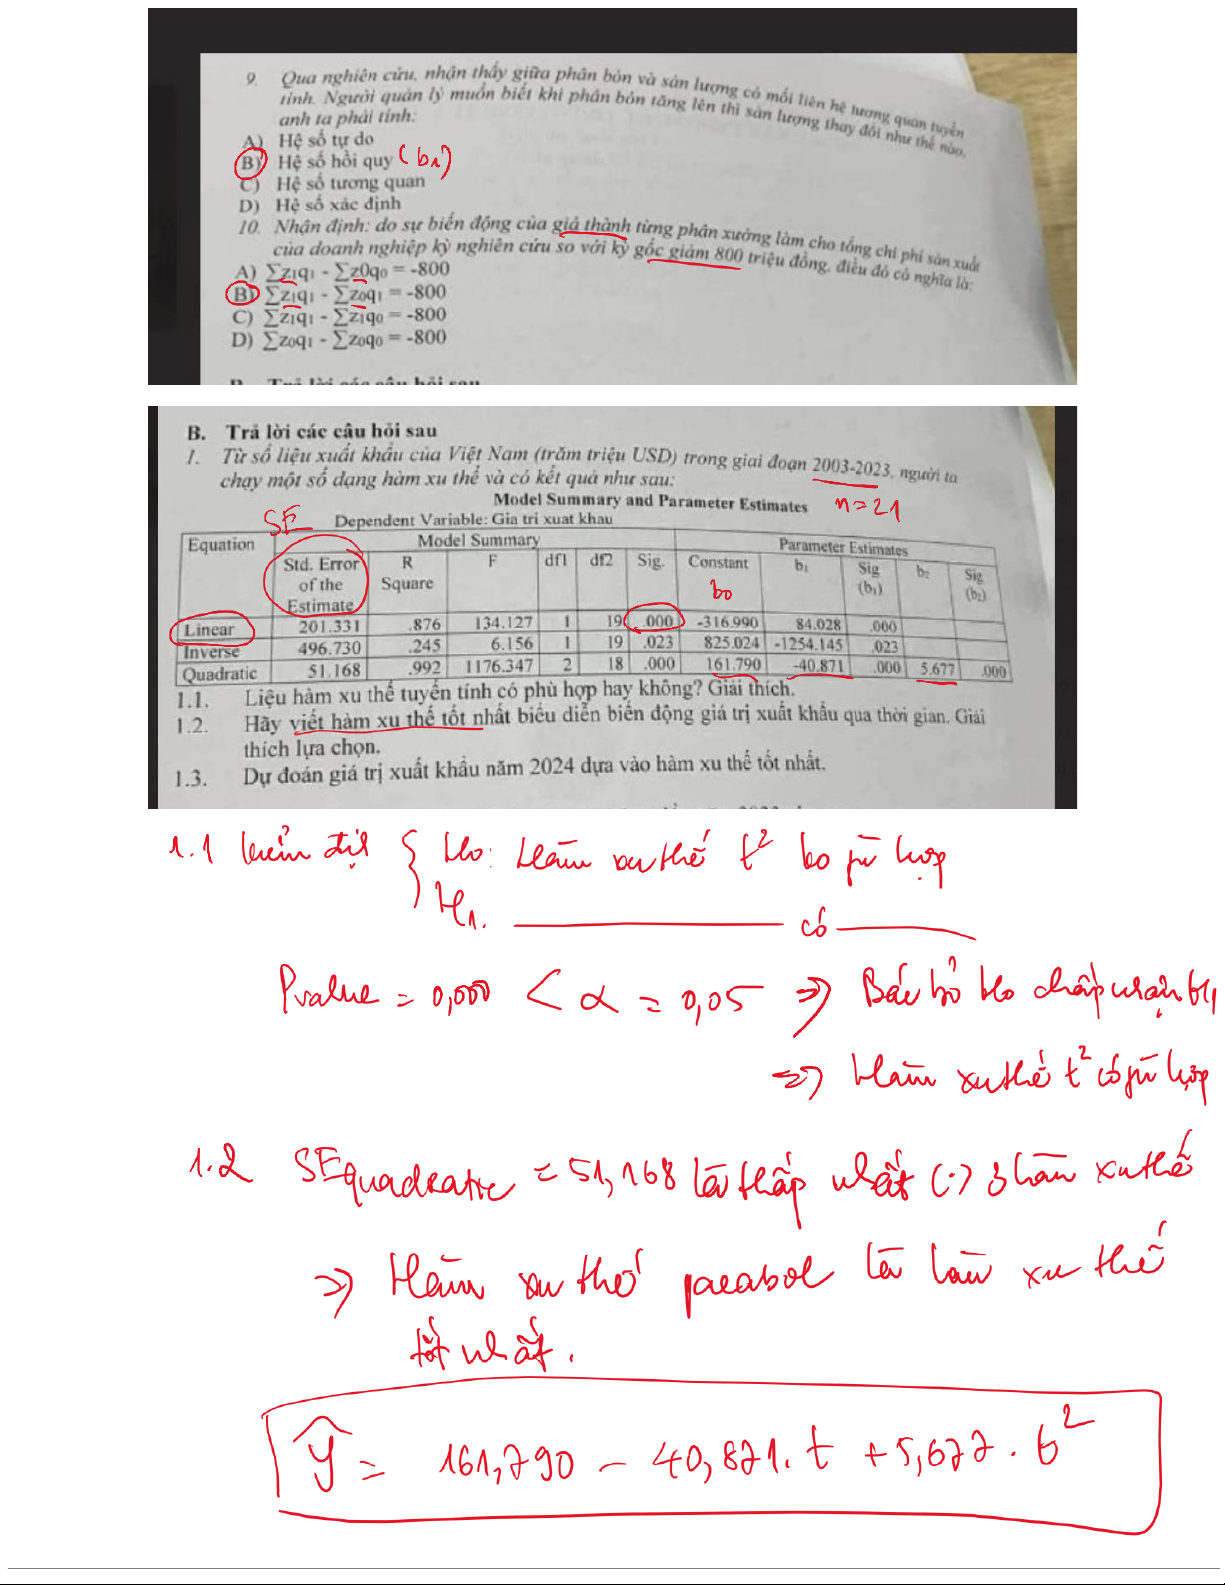 9. Qua nghiên cứu, nhận thấy giữa phân bón và sản lượng có mối liên hệ tương quan tuyến
tính. Người quản lý muốn biết khi phân bón tăng lên thì sản lượng thay đổi như thế nào,
anh ta phải tính:
A) Hệ số tự do
B) Hệ số hồi quy (b1)
C) Hệ số tương quan
D) Hệ số xác định
10. Nhận định: do sự biến động của giá thành từng phân xưởng làm cho tổng chi phí sản xuất
của doanh nghiệp kỳ nghiên cứu so với kỳ gốc giảm 800 triệu đồng, điều đó có nghĩa là:
A) ∑z1q1 - ∑z0q0 = -800
B) ∑z1q1 - ∑z0q1 = -800
C) ∑z1q1 - ∑z1q0 = -800
D) ∑z0q1 - ∑z0q0 = -800
B. Trả lời các câu hỏi sau
B. Trả lời các câu hỏi sau
1. Từ số liệu xuất khẩu của Việt Nam (trăm triệu USD) trong giai đoạn 2003-2023, người ta
chạy một số dạng hàm xu thế và có kết quả như sau:
Model Summary and Parameter Estimates
n=21
SE
Dependent Variable: Gia tri xuat khau
Equation Model Summary Parameter Estimates
Std. Error of the Estimate R Square F df1 df2 Sig. Constant b1 Sig (b1) b2 Sig (b2)
b0
Linear 201.331 .876 134.127 1 19 .000 -316.990 84.028 .000
Inverse 496.730 .245 6.156 1 19 .023 825.024 -1254.145 .023
Quadratic 51.168 .992 1176.347 2 18 .000 161.790 -40.871 .000 5.677 .000
1.1. Liệu hàm xu thế tuyến tính có phù hợp hay không? Giải thích.
1.2. Hãy viết hàm xu thế tốt nhất biểu diễn biến động giá trị xuất khẩu qua thời gian. Giải
thích lựa chọn.
1.3. Dự đoán giá trị xuất khẩu năm 2024 dựa vào hàm xu thế tốt nhất.
1.1 kiểm địh { Ho: Hàm xu thế t² ko fù hợp
H1. có
Pvalue = 0,000 < α = 0,05 => Bác bỏ Ho chấp nhận H1
=> Hàm xu thế t² có fù hợp
1.2 SEquadratic = 51,168 là thấp nhất (.) 3 hàm xu thế
=> Hàm xu thế parabol là hàm xu thế
tốt nhất.
ŷ = 161,790 - 40,871.t + 5,677.t²